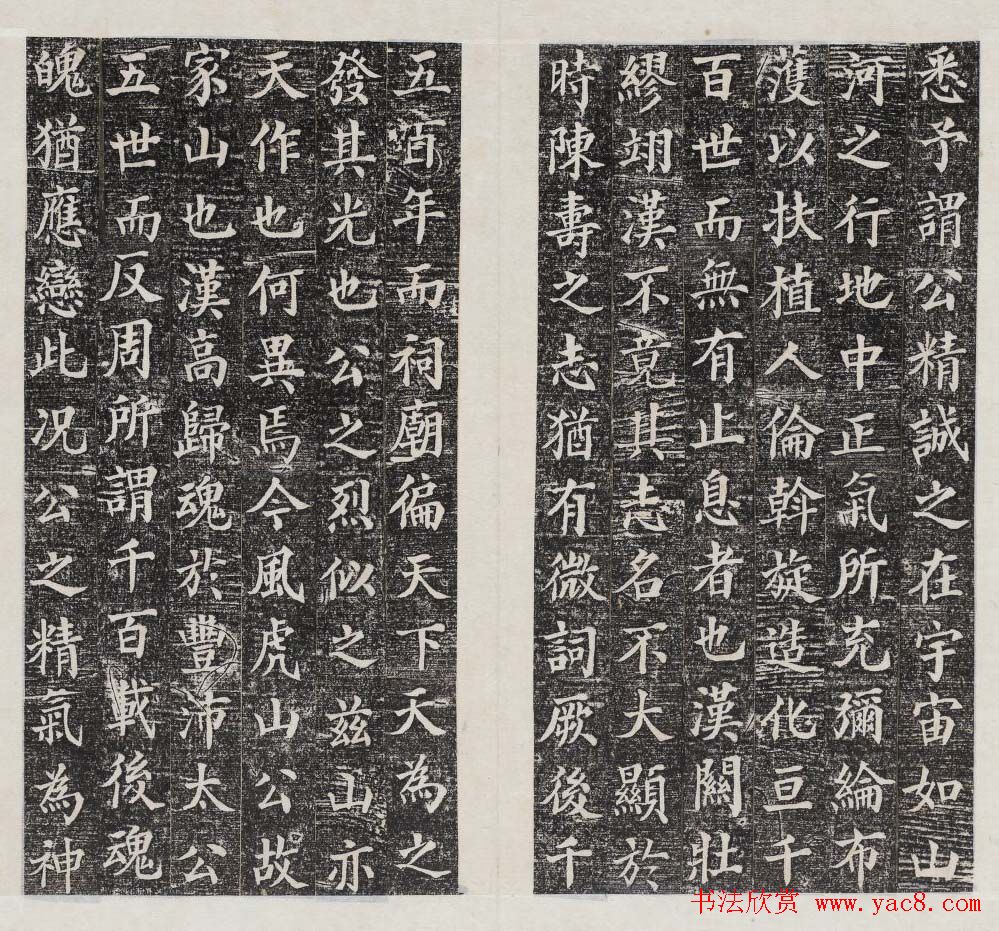 悉予謂公精誠之在宇宙如山
河之行地中正氣所充彌綸布
濩以扶植人倫斡旋造化亘千
百世而無有止息者也漢關壯
繆翊漢不竟其志名不大顯於
時陳壽之志猶有微詞厥後千
五百年而祠廟徧天下天為之
發其光也公之烈似之兹山亦
天作也何異焉今風虎山公故
家山也漢高歸魂於豐沛太公
五世而反周所謂千百載後魂
魄猶應戀此况公之精氣為神
书法欣赏 www.yac8.com